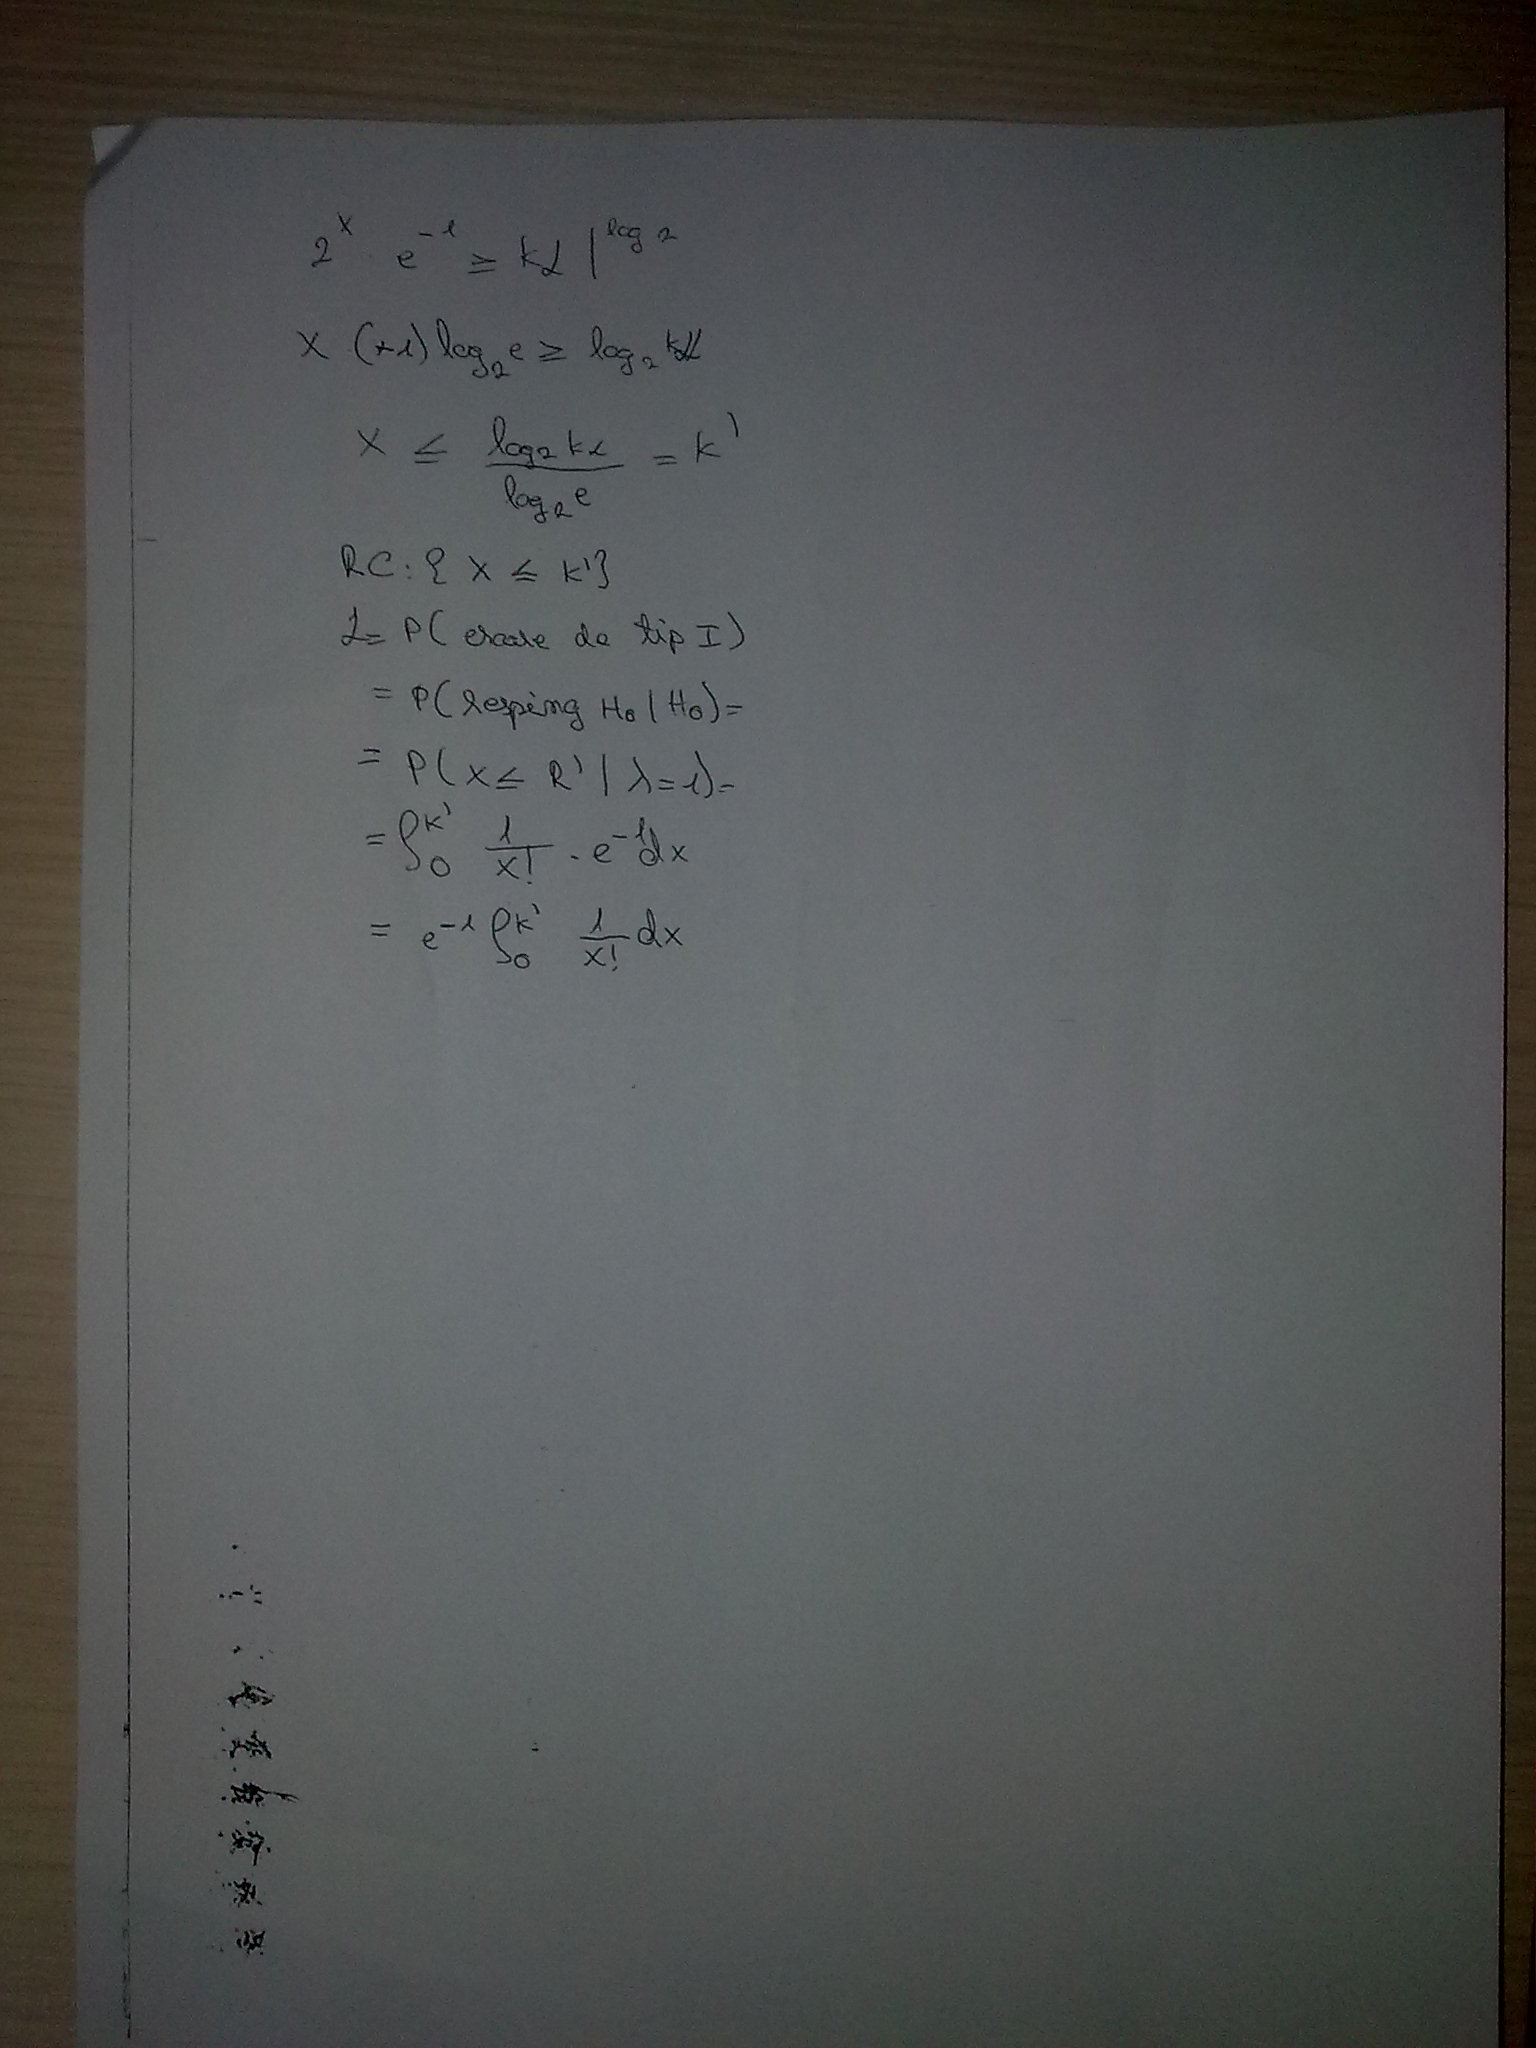 2^x · e^{-1} ≥ kα |^{log 2}
x (-1) log_2 e ≥ log_2 kα
x ≤ \frac{log_2 kα}{log_2 e} = k'
RC: { x ≤ k'}
α = P( eroare de tip I )
= P( resping H_0 | H_0 ) =
= P( x ≤ k' | λ = 1 ) =
= ∫_0^{k'} \frac{1}{x!} · e^{-1} dx
= e^{-1} ∫_0^{k'} \frac{1}{x!} dx